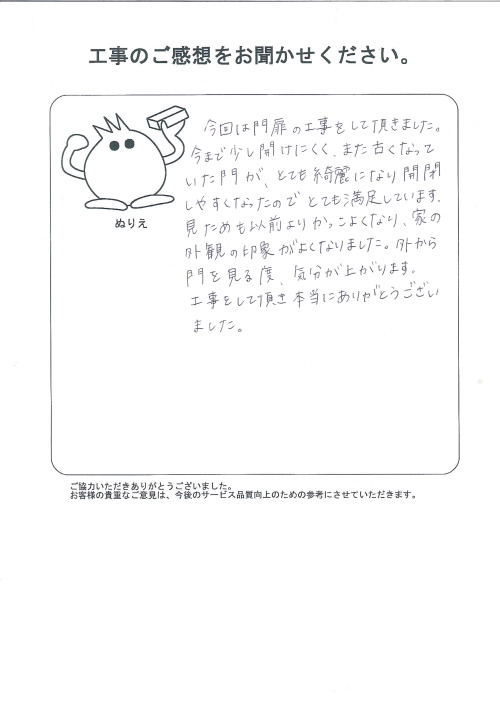 工事のご感想をお聞かせください。
今回は門扉の工事をして頂きました。
今まで少し開けにくく、また古くなって
いた門が、とても綺麗になり開閉
しやすくなったのでとても満足しています。
見ためも以前よりかっこよくなり、家の
外観の印象がよくなりました。外から
門を見る度、気分が上がります。
工事をして頂き本当にありがとうござい
ました。
ぬりえ
ご協力いただきありがとうございました。
お客様の貴重なご意見は、今後のサービス品質向上のための参考にさせていただきます。